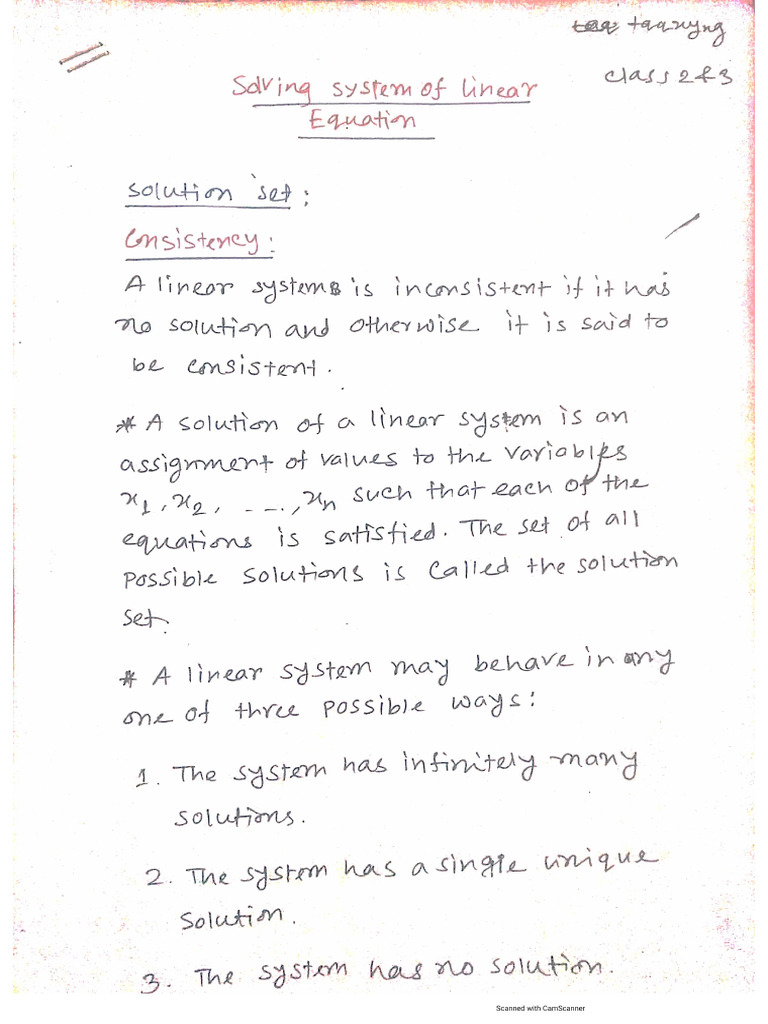 class 2 & 3
Solving system of linear
Equation
Solution set :
Consistency :
A linear systems is inconsistent if it has
no solution and otherwise it is said to
be consistent.
* A solution of a linear system is an
assignment of values to the variables
x1, x2, ...., xn such that each of the
equations is satisfied. The set of all
possible solutions is called the solution
set.
* A linear system may behave in any
one of three possible ways :
1. The system has infinitely many
solutions.
2. The system has a single unique
solution.
3. The system has no solution.
Scanned with CamScanner